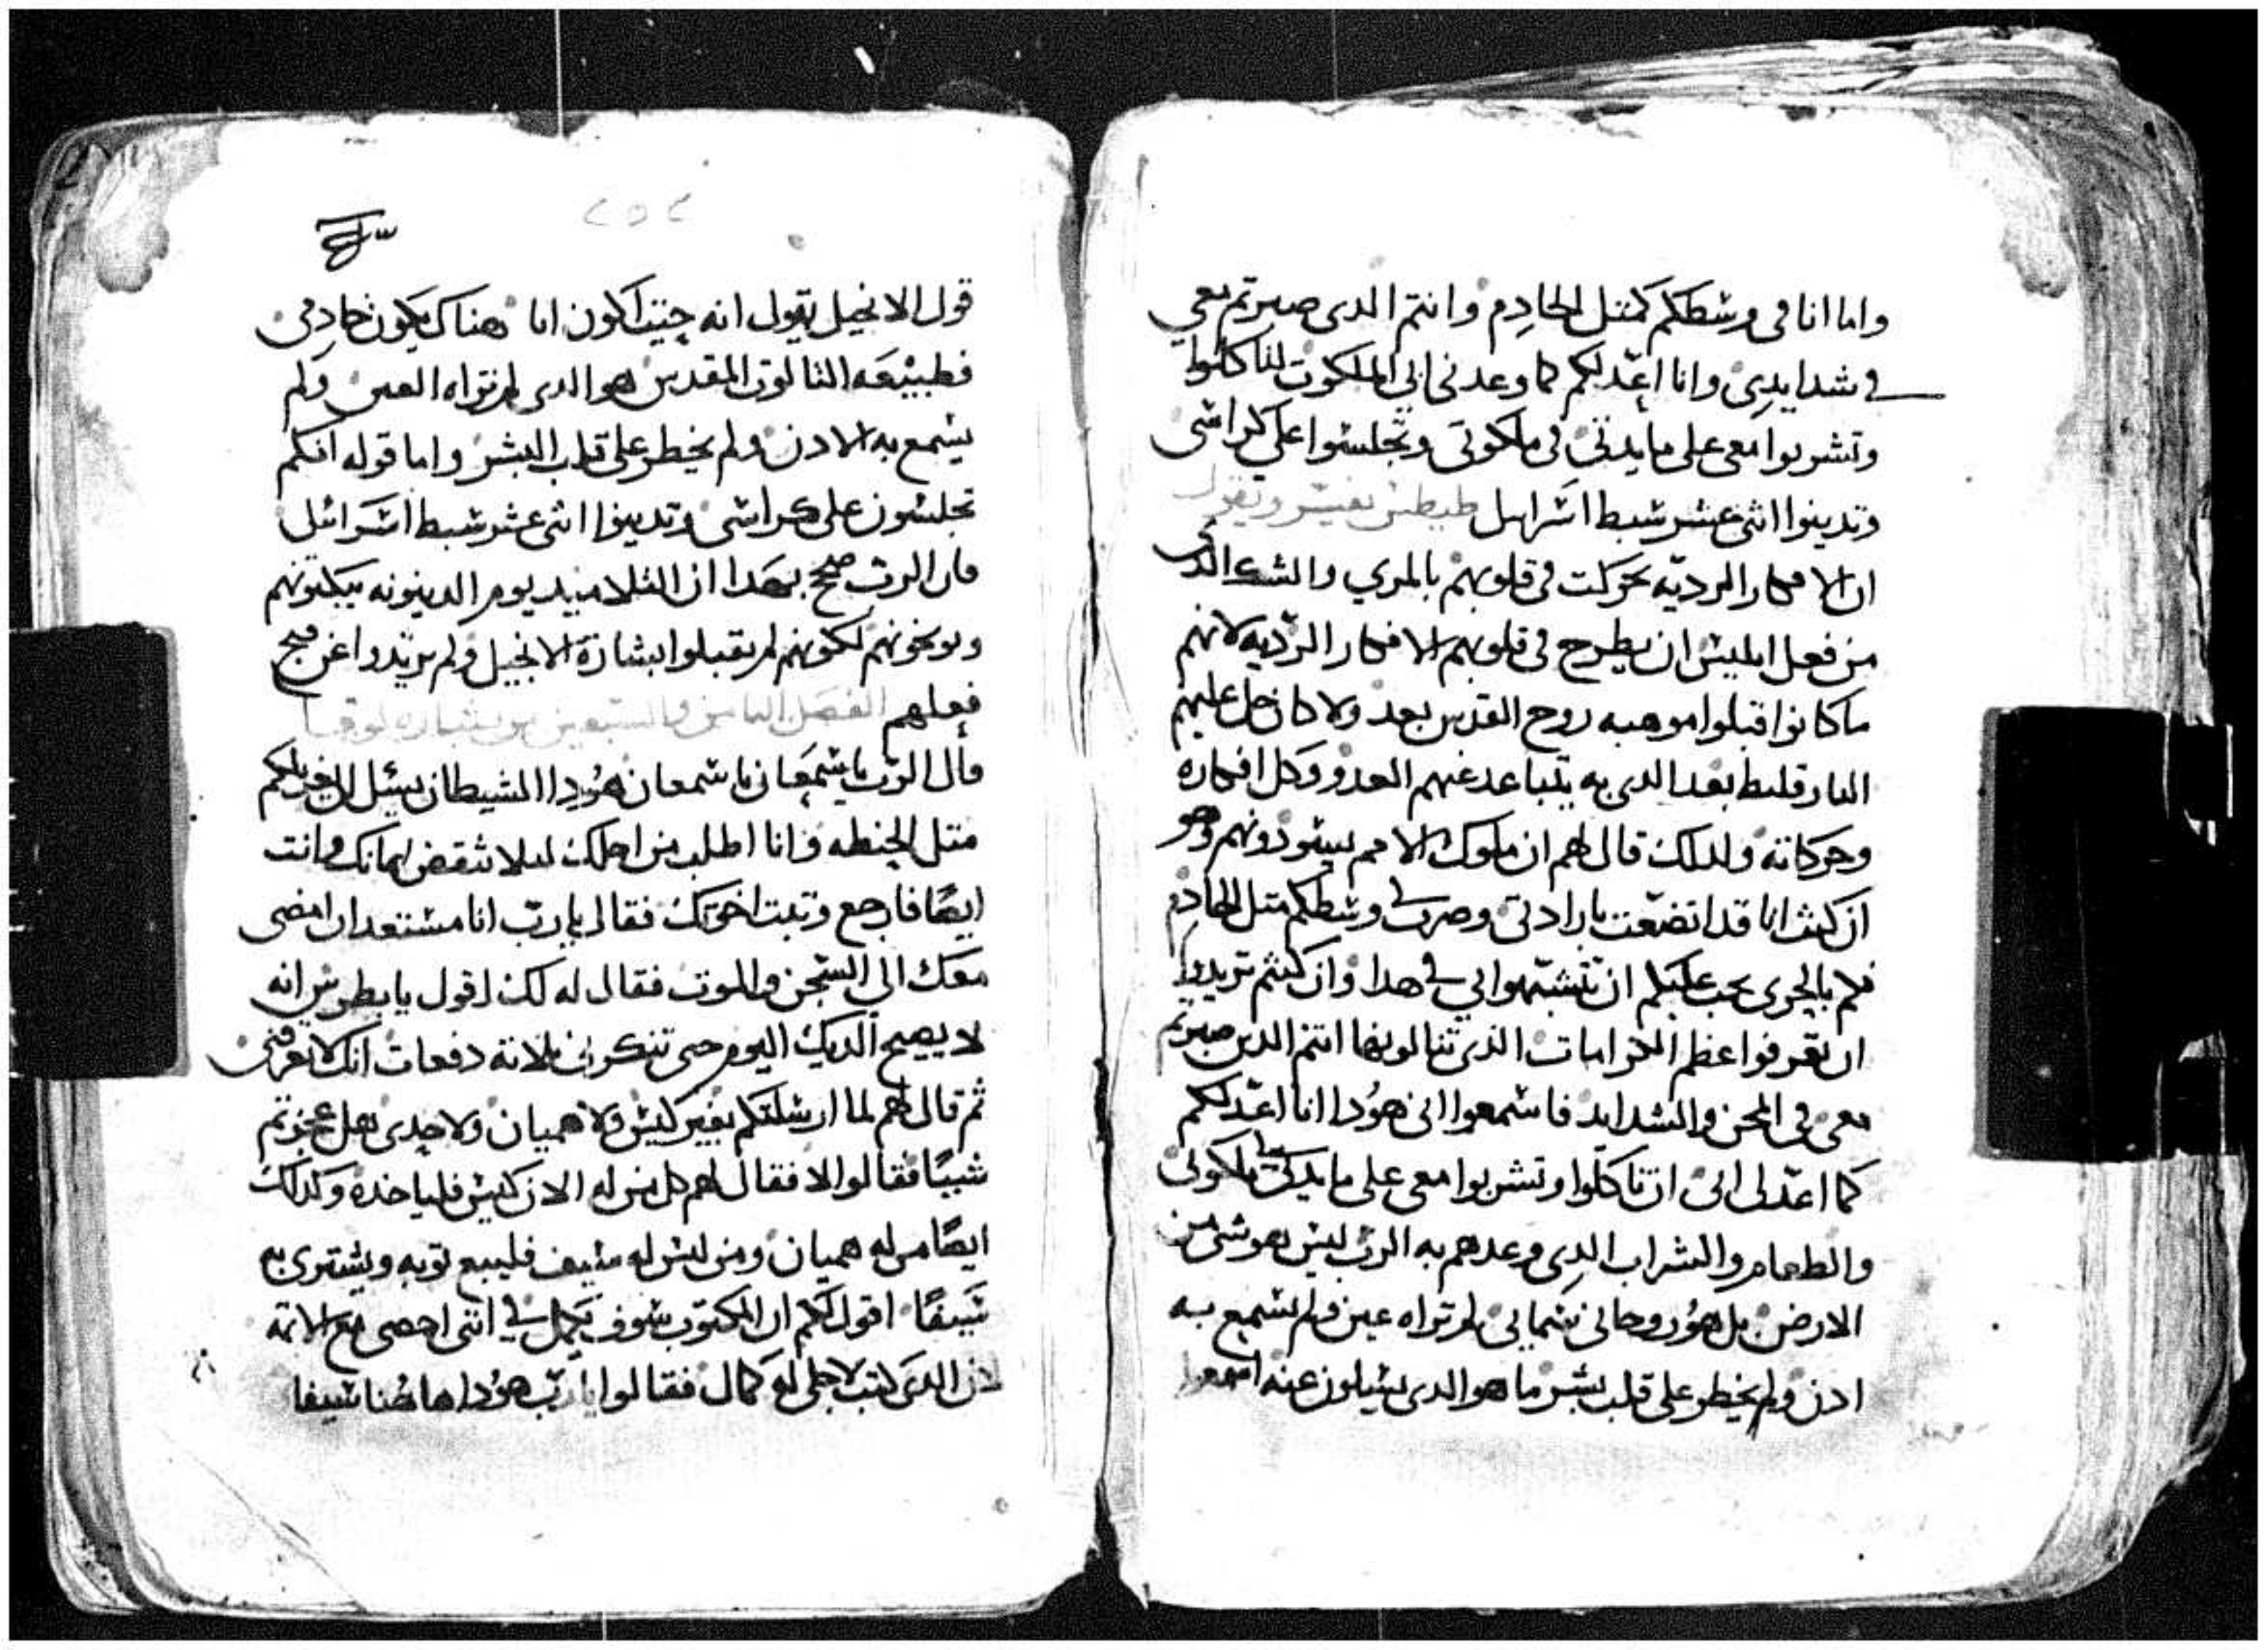 واما انا فى وسطكم كمتل الخادم وانتم الدى صبرتم معي
فى شدايدى وانا اعدلكم كما وعدنى ابى الملكوت لتاكلوا
وتشربوا معى على مايدتى فى ملكوتى وتجلسوا على كراسى
وتدينوا اثنى عشر سبط اسراييل طيطس يفسر ويقول
ان الافكار الرديه تحركت فى قلوبهم بالمري والشك الدى
من فعل ابليس ان يطرح فى قلوبهم الافكار الرديه لانهم
ما كانوا قبلوا موهبه روح القدس بعد ولا كان حل عليهم
البارقليط بعد الدى به يتباعد عنهم العدو وكل افكاره
وحركاته ولدلك قال لهم ان ملوك الامم يسودونهم وهو
ان كنت انا قد اتضعت بارادتى وصرت فى وسطكم متل الخادم
فكم بالحرى يجب عليكم ان تتشبهوا بي فى هدا وان كنتم تريدوا
ان تعرفوا عظم الكرامات الذى تنالونها انتم الدين صبرتم
معى فى المحن والشدايد فاسمعوا انى هودا انا اعدلكم
كما اعدلى ابى ان تاكلوا وتشربوا معى على مايدتى فى ملكوتى
والطعام والشراب الدى وعدهم به الرب ليس هو شى من
الارض بل هو روحانى سمايى لم تراه عين ولم تسمع به
ادن ولم يخطر على قلب بشر ما هو الدى يسيلون عنه اسمعوا
٢٥٢
قول الانجيل يقول انه حيت اكون انا هناك يكون خادمى
فطبيعه التالوت المقدس هو الدى لم تراه العين ولم
يسمع به الادن ولم يخطر على قلب البشر واما قوله انكم
تجلسون على كراسى وتدينوا اثنى عشر سبط اسرائيل
فان الرب صحح بهدا ان التلاميد يوم الدينونه يبكتونهم
ويوبخونهم لكونهم لم يقبلوا بشارة الانجيل ولم يرتدوا عن قبح
فعلهم الفصل التامن والسبعين من بشاره لوقا
قال الرب يا سمعان يا سمعان هودا الشيطان يسئل ان يغربلكم
متل الحنطه وانا اطلب من اجلك ليلا تنقض ايمانك وانت
ايضًا فارجع وتبت اخوتك فقال يا رب انا مستعد ان امضى
معك الى السجن والموت فقال له لك اقول يا بطرس انه
لا يصيح الديك اليوم حتى تنكرنى تلاتة دفعات انك لا تعرفنى
ثم قال لهم لما ارسلتكم بغير كيس ولا هميان ولا حدى هل عجزتم
شييًا فقالوا لا فقال لهم كل من له الان كيس فلياخده وكدلك
ايضًا من له هميان ومن ليس له سيف فليبيع توبه ويشترى به
سيفًا اقول لكم ان المكتوب سوف يكمل فى اننى احصى مع الاتمه
لان الدى كتب لاجلى له كمال فقالوا يا رب هودا هاهنا سيفا